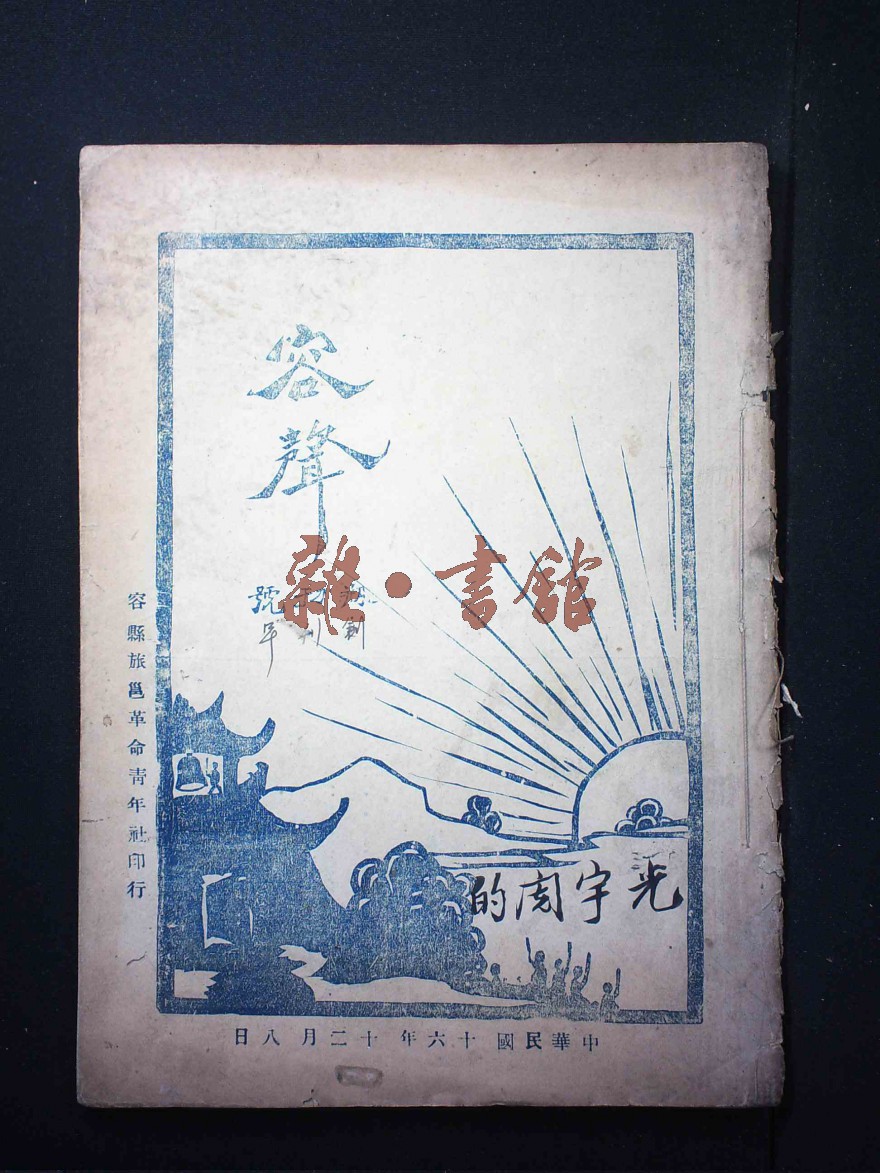 容聲
雜·書館
創
刊
號
光宇的
容縣旅邕革命青年社印行
中華民國十六年十二月八日